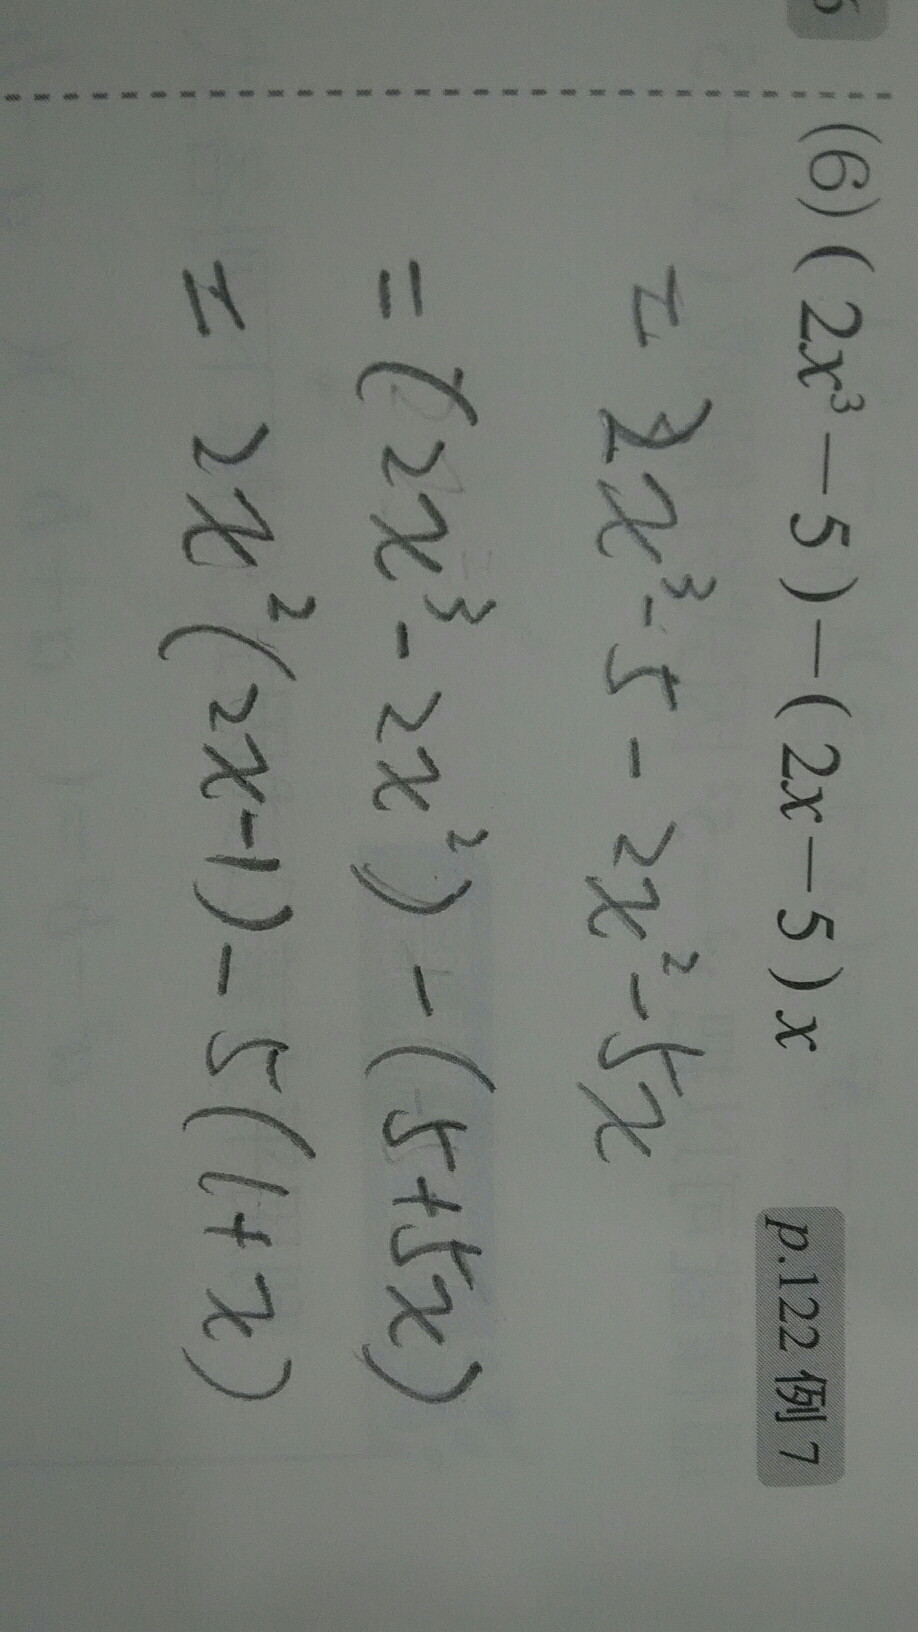 (6) (2x³-5)-(2x-5)x p.122 例 7
= 2x³-5-2x²-5x
= (2x³-2x²)-(5+5x)
= 2x²(2x-1)-5(1+x)